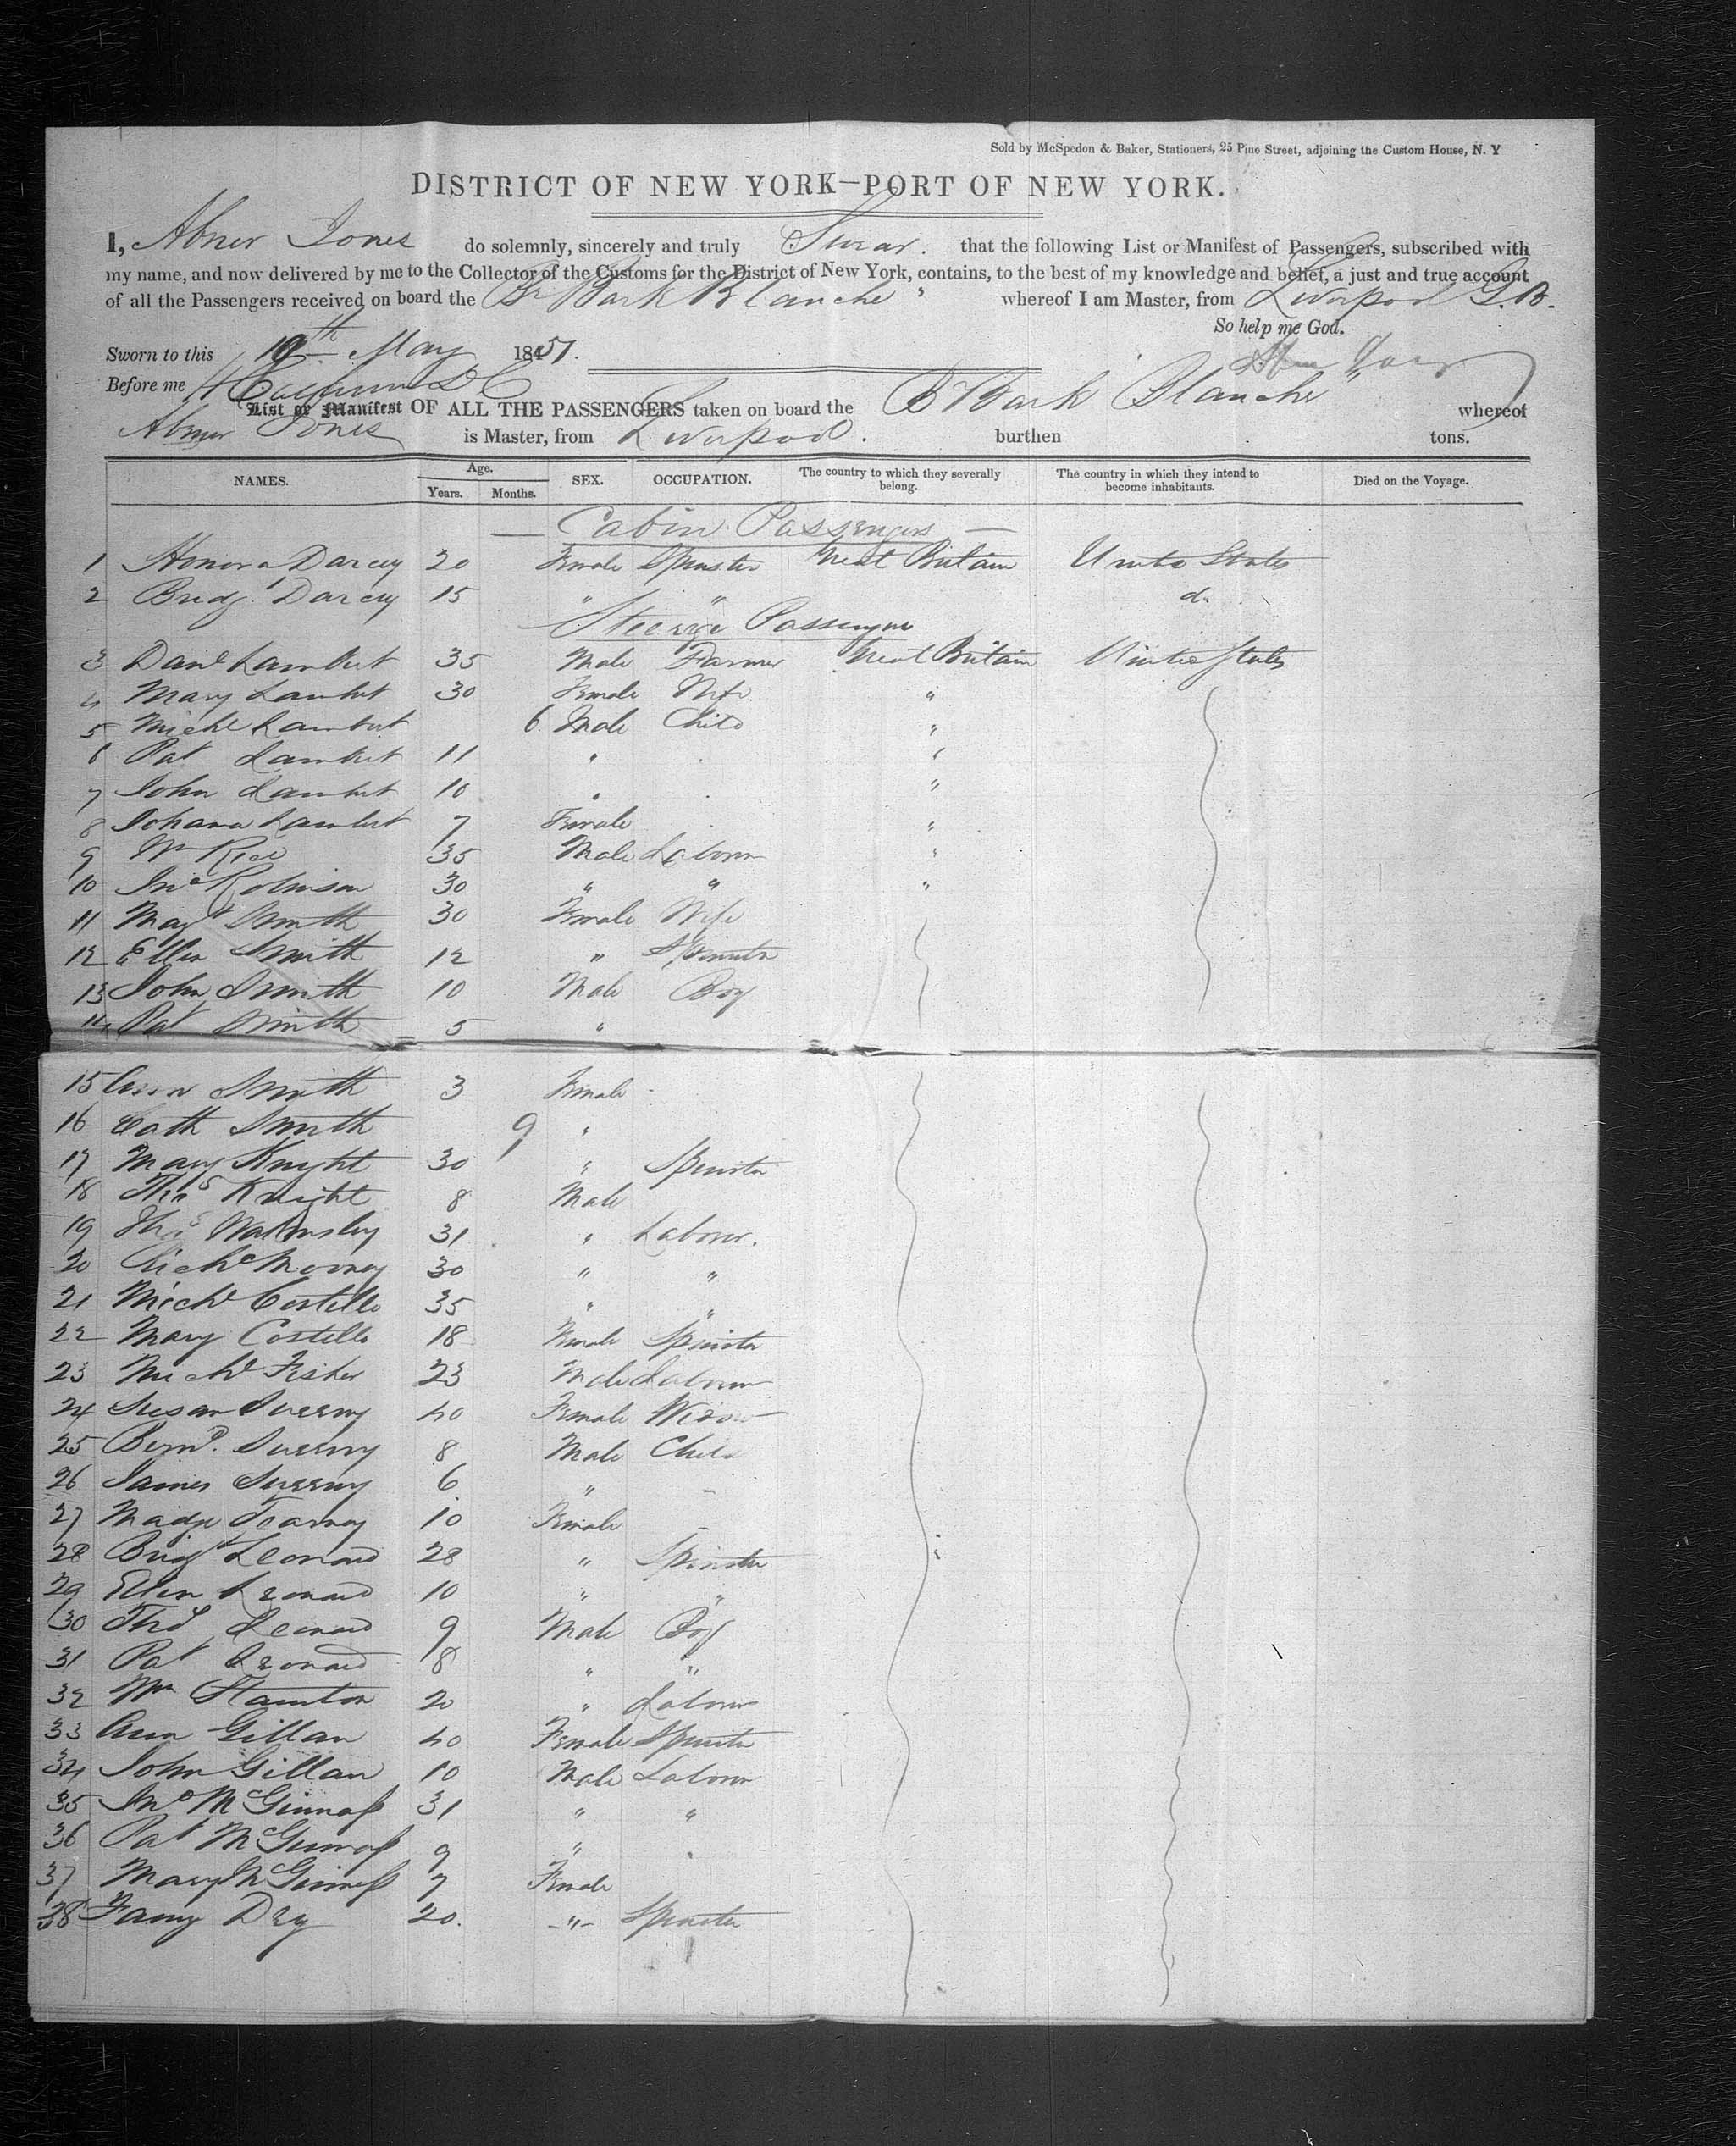 Sold by McSpedon & Baker, Stationers, 25 Pine Street, adjoining the Custom House, N. Y
DISTRICT OF NEW YORK—PORT OF NEW YORK.
I, Abner Jones do solemnly, sincerely and truly Swear. that the following List or Manifest of Passengers, subscribed with
my name, and now delivered by me to the Collector of the Customs for the District of New York, contains, to the best of my knowledge and belief, a just and true account
of all the Passengers received on board the Br Bark Blanche whereof I am Master, from Liverpool G.B.
So help me God.
Sworn to this 19th May 1851.
Before me
List or Manifest OF ALL THE PASSENGERS taken on board the Br Bark Blanche whereof
Abner Jones is Master, from Liverpool. burthen tons.
NAMES. Age. Years. Months. SEX. OCCUPATION. The country to which they severally belong. The country in which they intend to become inhabitants. Died on the Voyage.
— Cabin Passengers —
1 Honora Darcey 20 Female Spinster Great Britain United States
2 Bridg Darcey 15 " " do
Steerage Passengers
3 Danl Lambert 35 Male Farmer Great Britain United States
4 Mary Lambert 30 Female Wife "
5 Michl Lambert 6 Male Child "
6 Pat Lambert 11 " "
7 John Lambert 10 " "
8 Johana Lambert 7 Female "
9 Wm Rice 35 Male Labourer "
10 Jno Robinson 30 " " "
11 Magt Smith 30 Female Wife
12 Ellen Smith 12 " Spinster
13 John Smith 10 Male Boy
14 Pat Smith 5 "
15 Ann Smith 3 Female
16 Cath Smith 9 "
17 Mary Knight 30 " Spinster
18 Thos Knight 8 Male
19 Thos Walmsley 31 " Laborer.
20 Richd Mooney 30 " "
21 Michl Costello 35 " "
22 Mary Costello 18 Female Spinster
23 Michl Fisher 23 Male Labourer
24 Susan 40 Female Widow
25 Bernd. 8 Male Child
26 James 6 "
27 Madge 10 Female
28 Bridgt Leonard 28 " Spinster
29 Ellen Leonard 10 " "
30 Thos Leonard 9 Male Boy
31 Pat Leonard 8 " "
32 Wm Staunton 20 " Labourer
33 Ann Gillan 40 Female Spinster
34 John Gillan 10 Male Labourer
35 Jno McGinnass 31 " "
36 Pat McGinnass 9 "
37 Mary McGinnass 7 Female
38 Fanny Dey 20. -"- Spinster